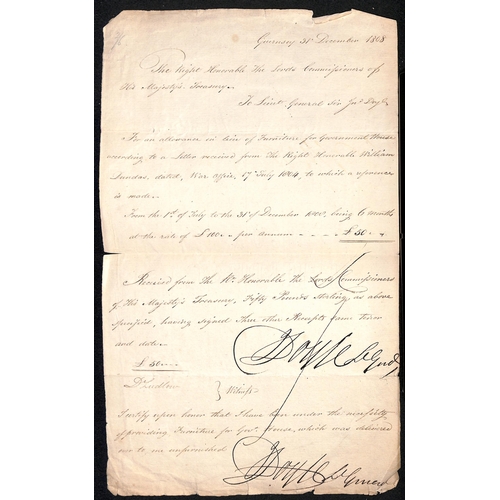 Guernsey 31st December 1808
The Right Honorable The Lords Commissioners of
His Majesty's Treasury.
To Lieut General Sir Jno Doyle
To an allowance in lieu of Furniture for Government House
according to a Letter received from The Right Honorable William
Dundas, dated, War Office, 17 July 1804, to which a reference
is made.
From the 1st of July to the 31st of December 1808, being 6 months
at the rate of £100 per annum £50
Received from the Rt Honorable The Lords Commissioners
of His Majesty's Treasury, Fifty Pounds Sterling, as above
specified, having signed Three other Receipts same Tenor
and date.
£50
Witness
I certify upon honor that I have been under the necessity
of providing Furniture for Govt House, which was delivered
over to me unfurnished